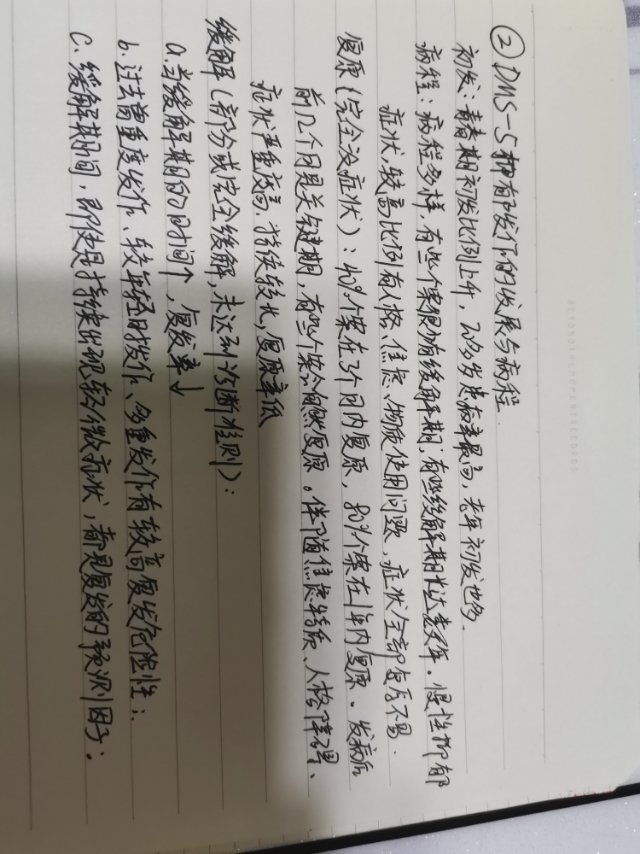 ② DMS-5抑郁发作的发展与病程.
初发：青春期初发比例上升，20多岁患病率最高，老年初发也多.
病程：病程多样，有些个案很少有缓解期；有些缓解期长达数年。慢性抑郁
症状，较高比例有人格、焦虑、物质使用问题，症状全部复原不易.
复原（完全没症状）：40%个案在3个月内复原，80%个案在1年内复原。发病后
前几个月是关键期，有些个案会自然复原。伴随焦虑特质、人格障碍、
症状严重度高、持续较长，复原率低
缓解（部分或完全缓解，未达到诊断准则）：
a.当缓解期的时间↑，复发率↓
b.过去曾重度发作、较年轻时发作、多重发作有较高复发危险性；
c.缓解期间，即使是持续出现较轻微症状，都是复发的预测因子；